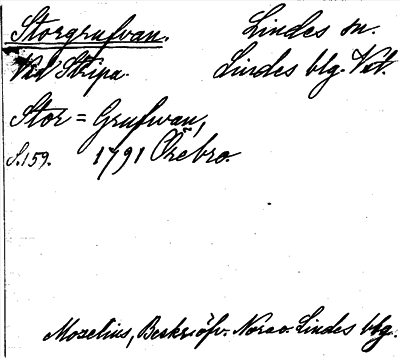 Storgrufvan. Lindes sn.
Vid Stripa. Lindes blg. Vstm.
Stor = Grufwan,
S. 159. 1791 Örebro.
Mozelius, Beskr. öfv. Nora o. Lindes blg.